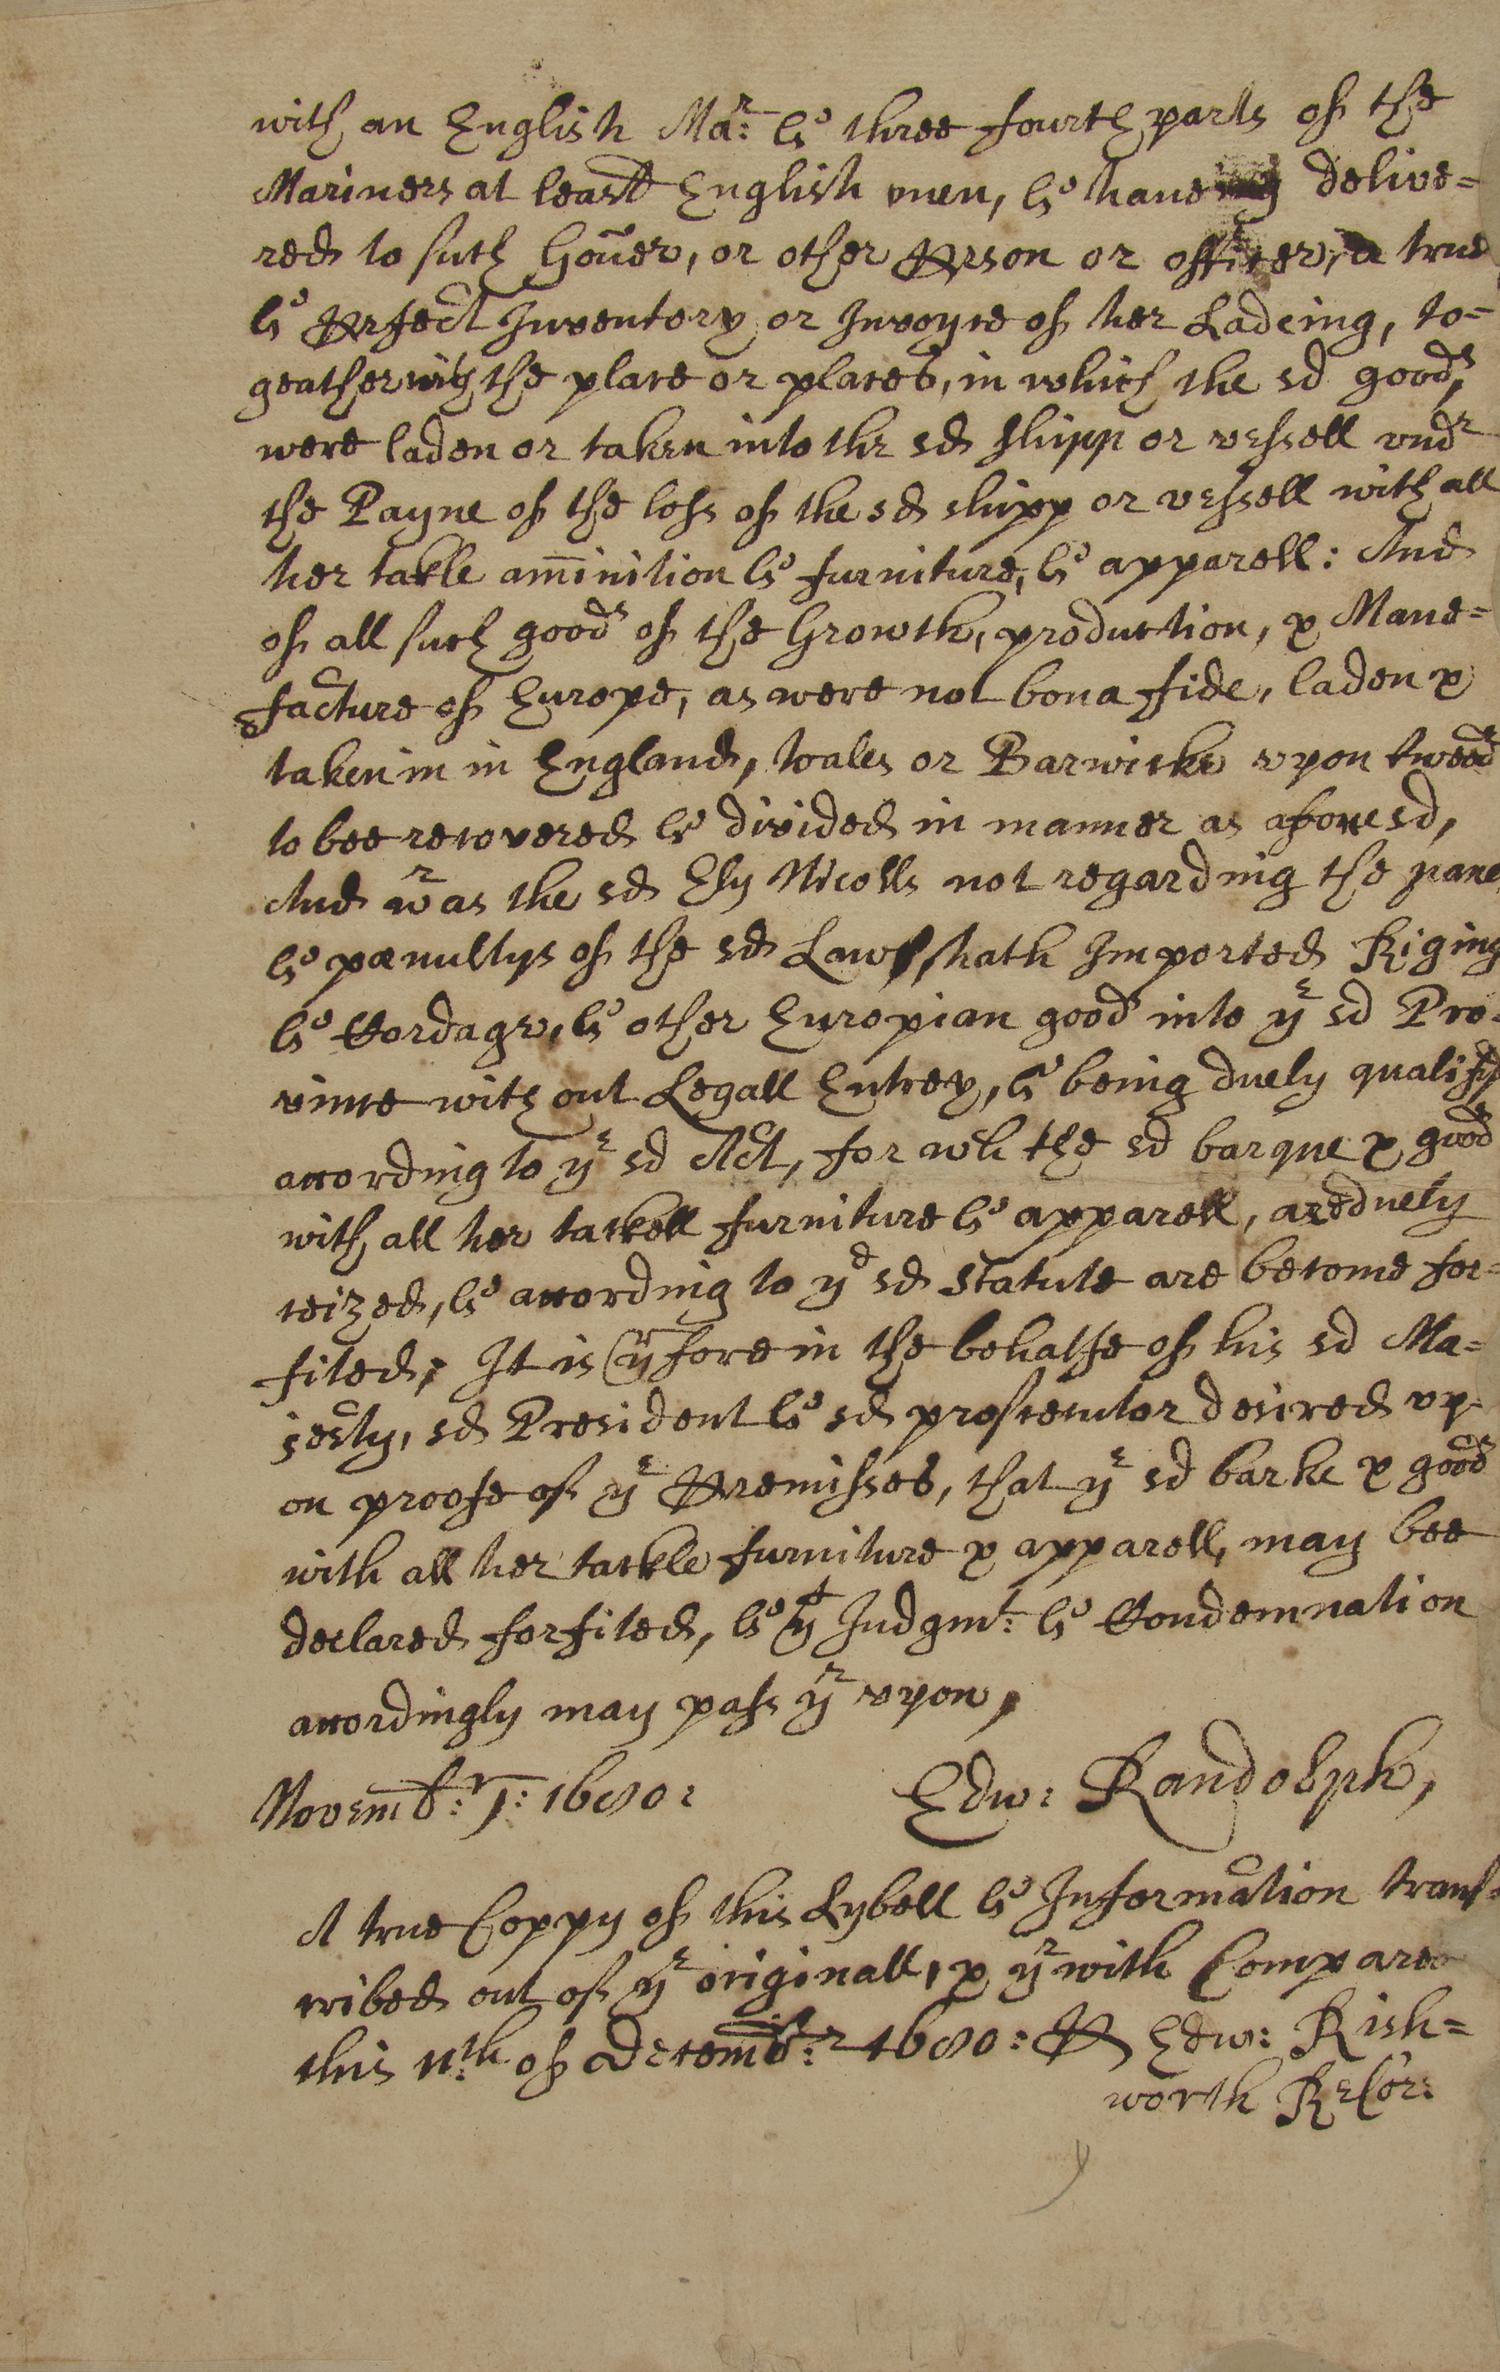 with an English Mar: & three fourth parts of the
Mariners at least English men, & haveing delive=
red to such Gouer, or other Prson or officer, a true
& Prfect Inventory or Invoyce of her Ladeing, to=
geather with the place or places, in which the sd goods,
were laden or taken into the sd shipp or vessell undr
the Payne of the loss of the sd shipp or vessell with all
her takle aminition & furniture, & apparell: And
of all such goods of the Growth, production, & Mane=
facture of Europe, as were not bona fide, laden &
taken in in England, Wales or Barwicke upon tweed
to bee recovered & divided in manner as aforesd,
And wras the sd Ely Nicolls not regarding the pane
& pænultys of the sd Laws, hath Imported Riging
& Cordage, & other Europian goods into ye sd Pro=
vince with out Legall Entrey, & being duely qualify
according to ye sd Act, for wh the sd barque & goods
with all her tackell furniture & apparell, are duely
ceized, & according to ye sd Statute are become for=
fited; It is yrfore in the behalfe of his sd Ma=
jesty, sd President & sd prosecutor desired up=
on proofe of ye Premisses, that ye sd barke & goods
with all her tackle furniture & apparell, may bee
declared forfited, & yt Judgmt: & Condemnation
accordingly may pass yr upon,
Novembr: 7: 1680: Edw: Randolph,
A true Coppy of this Lybell & Information trans=
cribed out of ye originall, & yr with Compared
this 11th: of Decembr: 1680: Pr Edw: Rish=
worth ReCor: